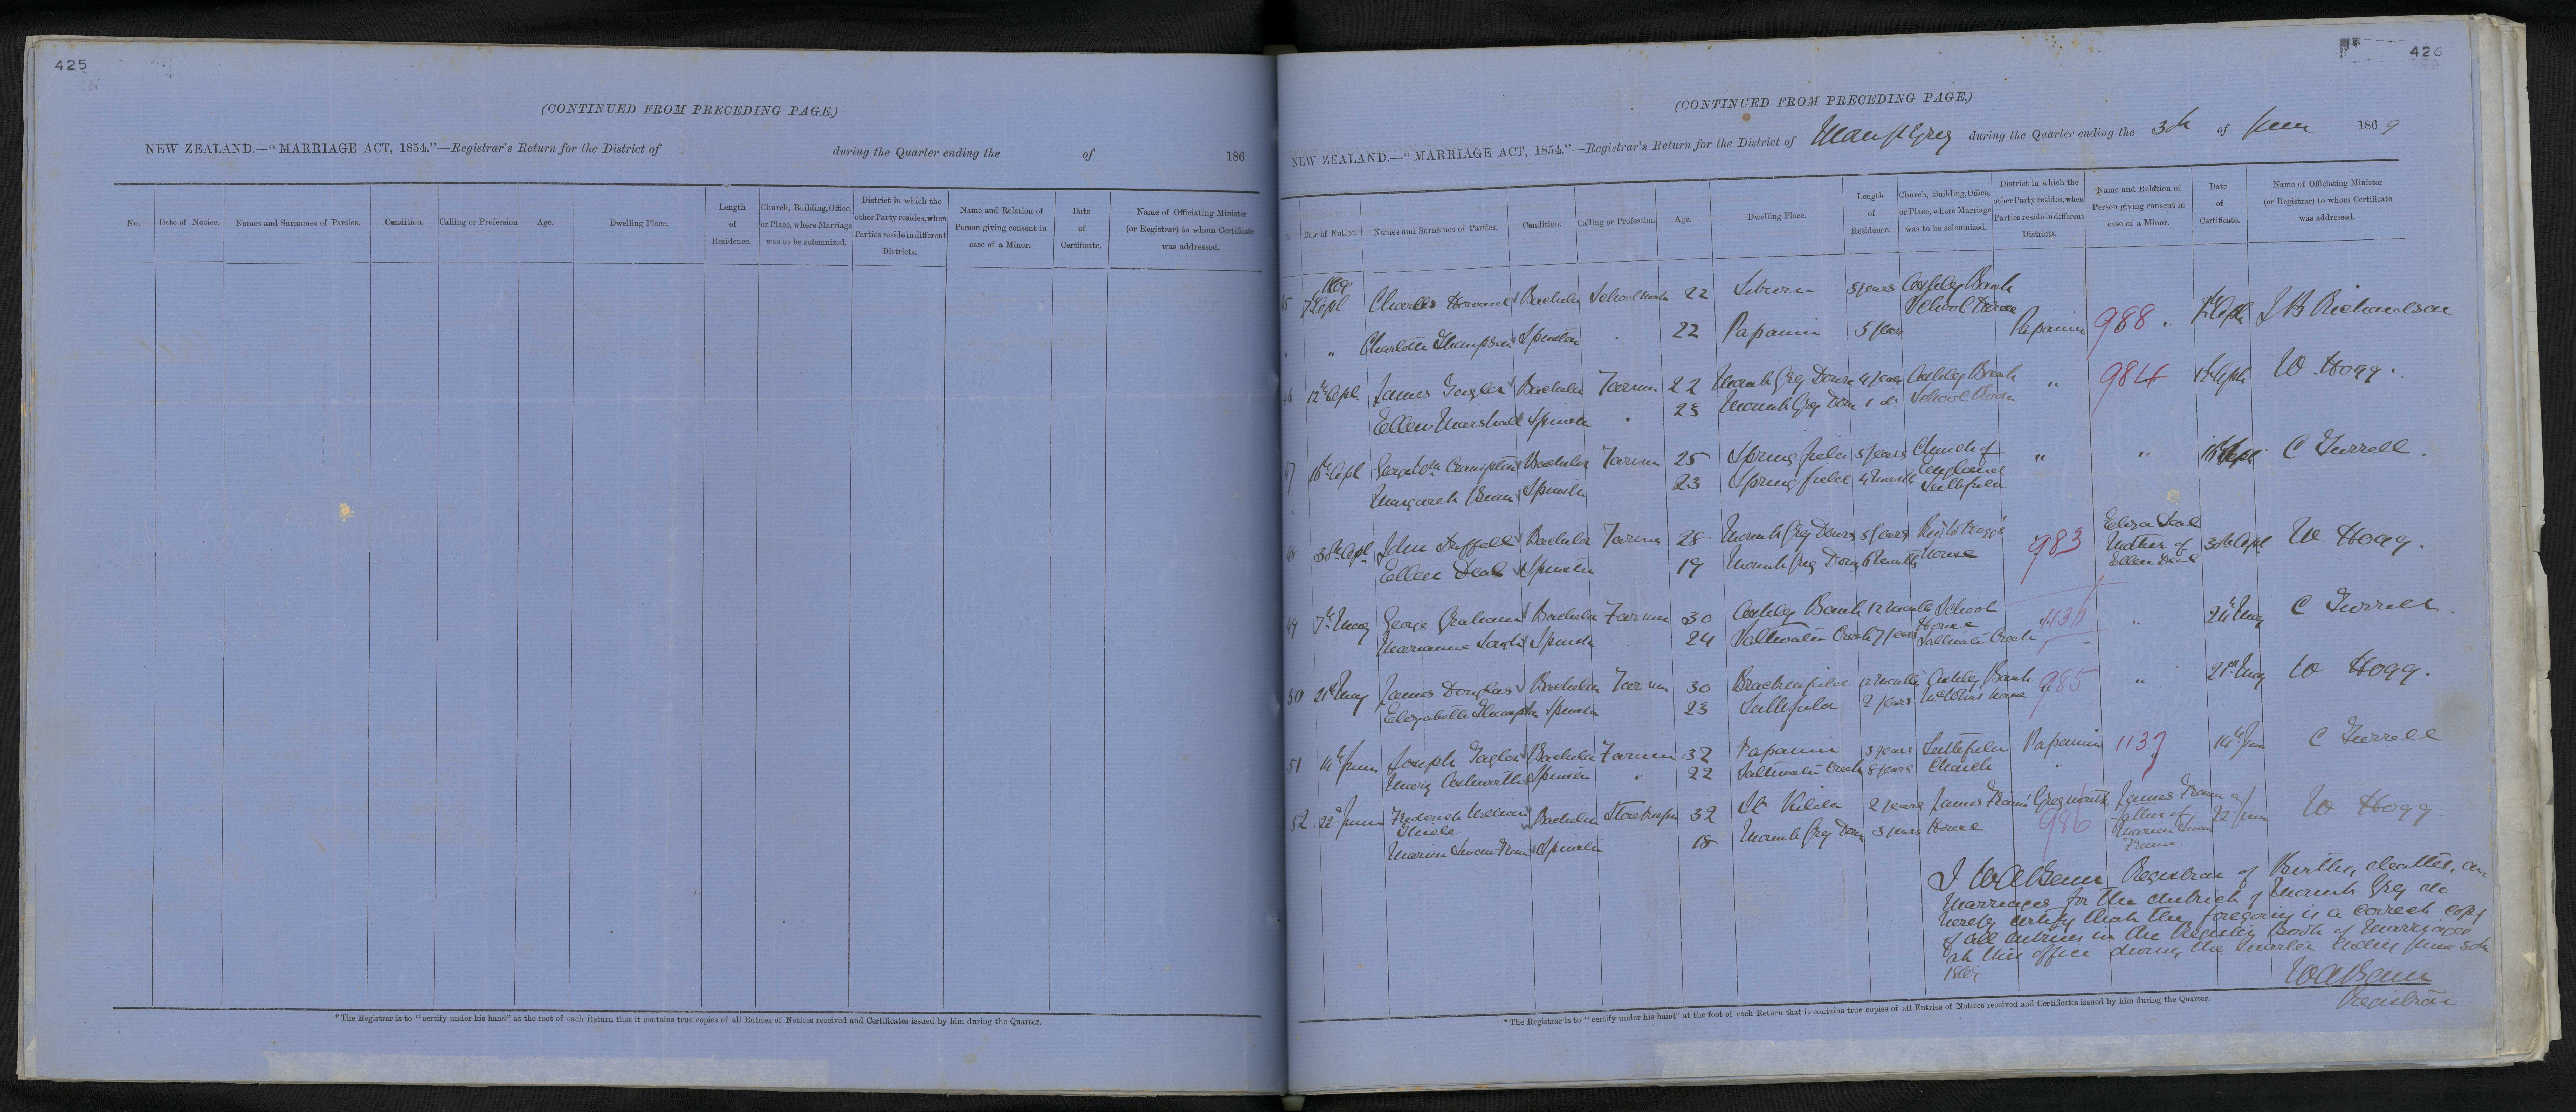 425
(CONTINUED FROM PRECEDING PAGE.)
NEW ZEALAND.—"MARRIAGE ACT, 1854."—Registrar's Return for the District of during the Quarter ending the of 186
No. Date of Notice. Names and Surnames of Parties. Condition. Calling or Profession Age. Dwelling Place. Length of Residence. Church, Building, Office, or Place, where Marriage was to be solemnized. District in which the other Party resides, when Parties reside in different Districts. Name and Relation of Person giving consent in case of a Minor. Date of Certificate. Name of Officiating Minister (or Registrar) to whom Certificate was addressed.
*The Registrar is to "certify under his hand" at the foot of each Return that it contains true copies of all Entries of Notices received and Certificates issued by him during the Quarter.
426
(CONTINUED FROM PRECEDING PAGE.)
NEW ZEALAND.—"MARRIAGE ACT, 1854."—Registrar's Return for the District of Mount Grey during the Quarter ending the 30th of June 1869
Date of Notice. Names and Surnames of Parties. Condition. Calling or Profession Age. Dwelling Place. Length of Residence. Church, Building, Office, or Place, where Marriage was to be solemnized. District in which the other Party resides, when Parties reside in different Districts. Name and Relation of Person giving consent in case of a Minor. Date of Certificate. Name of Officiating Minister (or Registrar) to whom Certificate was addressed.
1869
7th Apl Charles Howard Bachelor 22 5 years Ashley Bank
School House
" " Charlotte Thompson Spinster 22 Papanui 5 years Papanui 988
12th Apl James Taylor Bachelor Farmer 22 Mount Grey Downs 4 years Ashley Bank " 984 W. Hogg.
Ellen Marshall Spinster 23 Mount Grey Downs 1 do School Room
Bachelor Farmer 25 Springfield 5 years Church of " " C Turrell.
Margaret Spinster 23 Springfield 4 months England
Leithfield
30th Apl John Bachelor Farmer 28 Mount Grey Downs 5 years Rev W Hogg's 983 Eliza Deal 30th Apl W Hogg.
Ellen Deal Spinster 19 Mount Grey Downs House Mother of
Ellen Deal
49 7th May George Graham Bachelor Farmer 30 Ashley Bank 12 months School " C Turrell.
Marianne Spinster 24 Saltwater Creek 7 years House
Saltwater Creek
50 21st May James Douglas Bachelor Farmer 30 Brackenfield 12 months Ashley Bank 985 " 21st May W Hogg.
Elizabeth Thompson Spinster 23 Leithfield 2 years House
51 14th June Joseph Taylor Bachelor Farmer 32 Papanui 3 years Leithfield Papanui 1137 14th June C Turrell
Mary Ashworth Spinster " 22 Saltwater Creek 8 years Church
52 22nd June Frederick William Bachelor Storekeeper 32 St Kilda 2 years James Frame's Greymouth James Frame 22 June W. Hogg
Thiele 986 Father of
Marion Swan Frame Spinster 18 Mount Grey Downs 3 years House Marion Swan
Frame
I Registrar of Births, deaths, and
Marriages for the district of Mount Grey do
hereby certify that the foregoing is a correct copy
of all entries in the Register Book of Marriages
at this office during the quarter ending June 30th
1869
Registrar
*The Registrar is to "certify under his hand" at the foot of each Return that it contains true copies of all Entries of Notices received and Certificates issued by him during the Quarter.